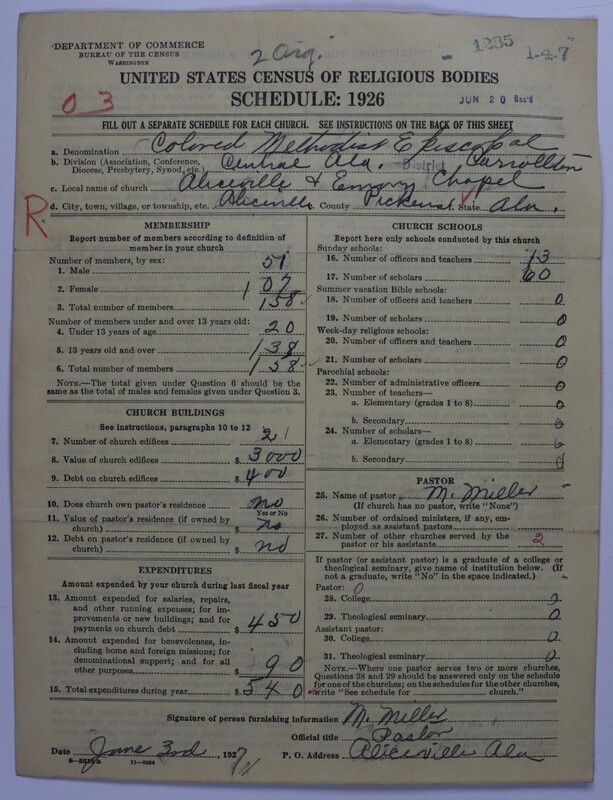 DEPARTMENT OF COMMERCE
BUREAU OF THE CENSUS
WASHINGTON
2 Orig.
1285
1-4-7
UNITED STATES CENSUS OF RELIGIOUS BODIES
SCHEDULE: 1926
03
JUN 20 Rec'd
FILL OUT A SEPARATE SCHEDULE FOR EACH CHURCH. SEE INSTRUCTIONS ON THE BACK OF THIS SHEET
a. Denomination Colored Methodist Episcopal
b. Division (Association, Conference, Diocese, Presbytery, Synod, etc.) Central Ala. District Carrollton
c. Local name of church Aliceville & Emory Chapel
R
d. City, town, village, or township, etc. Aliceville County Pickens State Ala.
MEMBERSHIP
Report number of members according to definition of
member in your church
Number of members, by sex:
1. Male 51
2. Female 107
3. Total number of members 158
Number of members under and over 13 years old:
4. Under 13 years of age 20
5. 13 years old and over 138
6. Total number of members 158
NOTE.—The total given under Question 6 should be
the same as the total of males and females given under Question 3.
CHURCH BUILDINGS
See instructions, paragraphs 10 to 12
7. Number of church edifices 2
8. Value of church edifices $ 3000
9. Debt on church edifices $ 400
10. Does church own pastor's residence? no
Yes or No
11. Value of pastor's residence (if owned by
church) $ no
12. Debt on pastor's residence (if owned by
church) $ no
EXPENDITURES
Amount expended by your church during last fiscal year
13. Amount expended for salaries, repairs,
and other running expenses; for im-
provements or new buildings; and for
payments on church debt $ 450
14. Amount expended for benevolences, in-
cluding home and foreign missions; for
denominational support; and for all
other purposes $ 90
15. Total expenditures during year $ 540
CHURCH SCHOOLS
Report here only schools conducted by this church
Sunday schools:
16. Number of officers and teachers 13
17. Number of scholars 60
Summer vacation Bible schools:
18. Number of officers and teachers 0
19. Number of scholars 0
Week-day religious schools:
20. Number of officers and teachers 0
21. Number of scholars 0
Parochial schools:
22. Number of administrative officers 0
23. Number of teachers—
a. Elementary (grades 1 to 8) 0
b. Secondary 0
24. Number of scholars—
a. Elementary (grades 1 to 8) 0
b. Secondary 0
PASTOR
25. Name of pastor M. Miller
(If church has no pastor, write "None")
26. Number of ordained ministers, if any, em-
ployed as assistant pastors
27. Number of other churches served by the
pastor or his assistants 2
If pastor (or assistant pastor) is a graduate of a college or
theological seminary, give name of institution below. (If
not a graduate, write "No" in the space indicated.)
Pastor: 0
28. College 0
29. Theological seminary 0
Assistant pastor:
30. College 0
31. Theological seminary 0
NOTE.—Where one pastor serves two or more churches,
Questions 28 and 29 should be answered only on the schedule
for one of the churches; on the schedules for the other churches,
write "See schedule for church."
Signature of person furnishing information M. Miller
Official title Pastor
Date June 3rd, 1927
P. O. Address Aliceville Ala